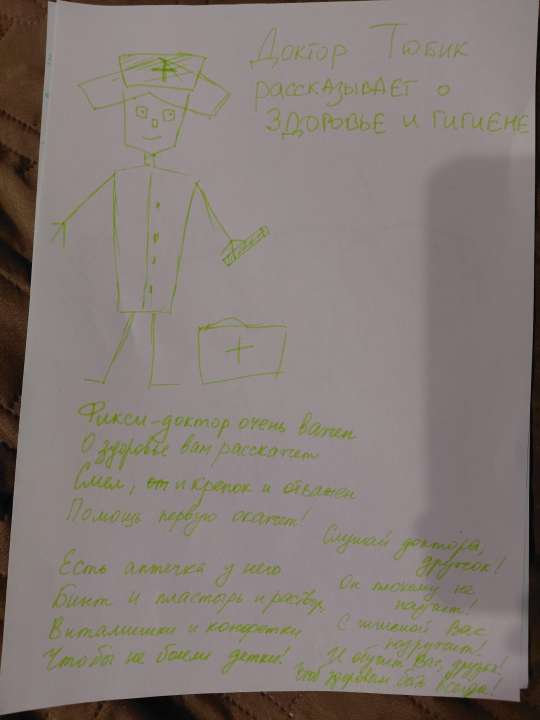 Доктор Тюбик
рассказывает о
здоровье и гигиене
Фикси-доктор очень важен
О здоровье вам расскажет
Смел, от и крепок и отважен
Помощь первую окажет!
Есть аптечка у него
Бинт и пластырь и раствор
Витамишки и конфетки
Чтобы не болели детки!
Слушай доктора,
дружок!
Он плохому не
научит!
С гигиеной Вас
подружит!
И обучит Вас, друзья!
Чтоб здоровым быть всегда!